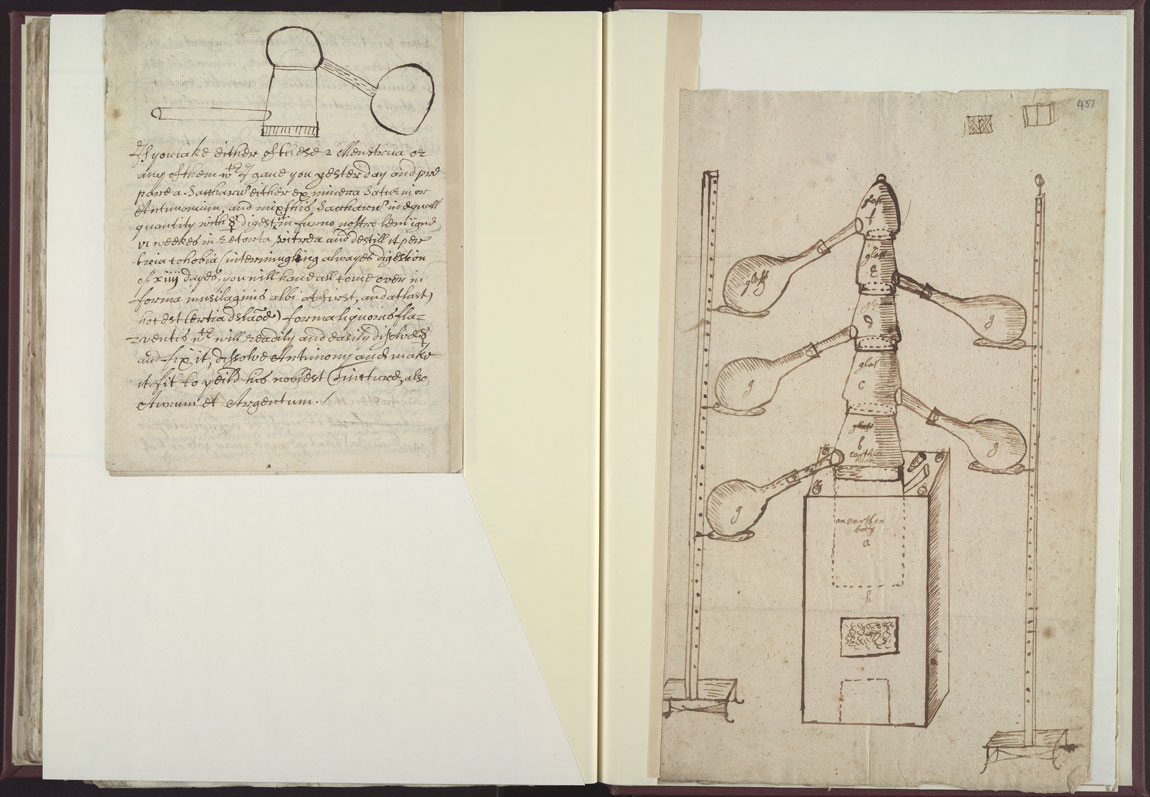 If you take either of these 2 Menstrua or
any of them wch I gave you yesterday and pre
pare a Saccharū either ex minera Saturni or
Antimonium, and mix this Saccharū in equall
quantity with digest in furno nostro leni igne
vi weekes in Retorta vitrea and destill it per
tricia cohobia (intermingling alwayes digestion
of xiiij dayes, you will have all come over in
forma musilaginis albi at first, and at last
hoc est tertia distāōe) forma liquoris fla-
-ventis wch will readily and easily dissolve
and fix it, dissolve Antimony and make
it fit to yeild his noblest Tincture, also
Aurum et Argentum./
437
glass
f
glass
glass
e
g
d
g
glas
c
glass
b
g
earthen
g
an earthen
body
a
h